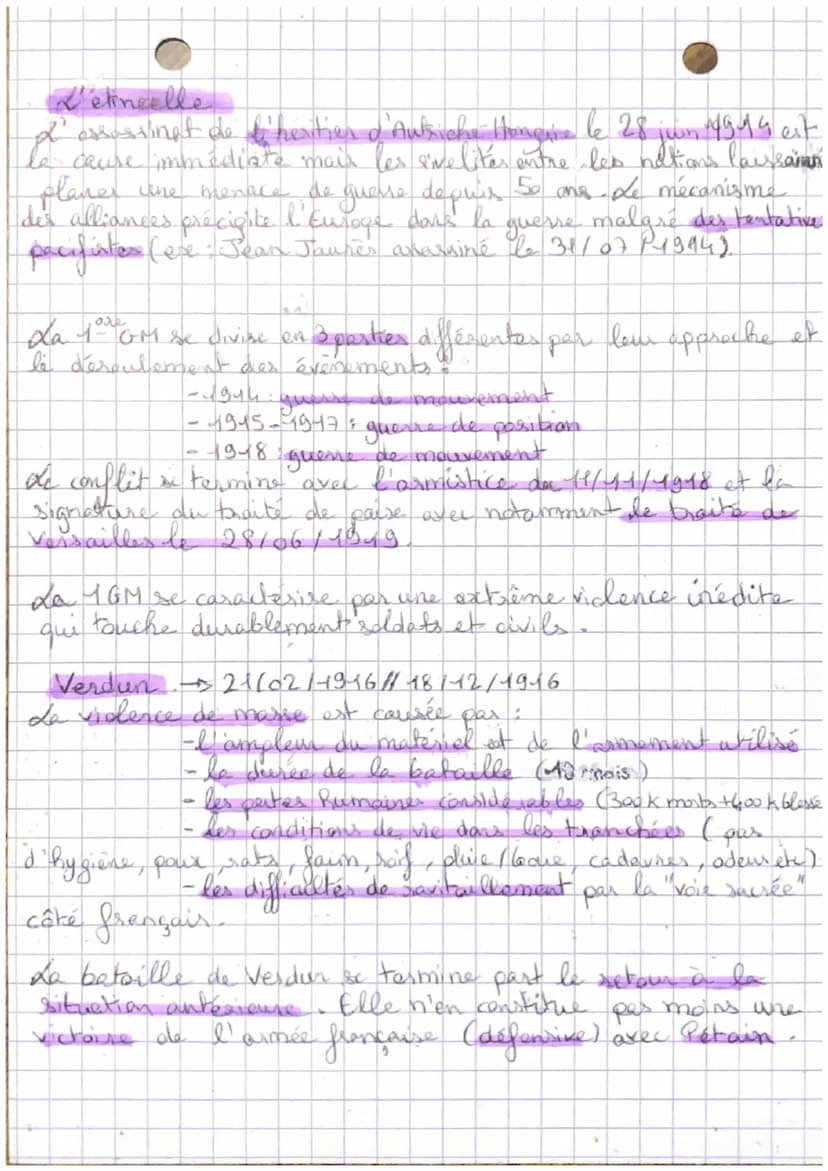 L'étincelle
L'assassinat de l'héritier d'Autriche-Hongrie le 28 juin 1914 est
la cause immédiate mais les rivalités entre les nations laissaient
planer une menace de guerre depuis 50 ans. Le mécanisme
des alliances précipite l'Europe dans la guerre malgré des tentative
pacifistes (ex : Jean Jaurès assassiné le 31/07/1914).
La 1ère GM se divise en 3 parties différentes par leur approche et
le déroulement des évènements :
- 1914 : guerre de mouvement
- 1915-1917 : guerre de position
- 1918 : guerre de mouvement
Le conflit se termine avec l'armistice du 11/11/1918 et la
signature du traité de paix avec notamment le traité de
Versailles le 28/06/1919.
La 1GM se caractérise par une extrême violence inédite
qui touche durablement soldats et civils.
Verdun → 21/02/1916 // 18/12/1916
La violence de masse est causée par :
- l'ampleur du matériel et de l'armement utilisé
- la durée de la bataille (10 mois)
- les pertes humaines considérables (300k morts +400k blessé
- les conditions de vie dans les tranchées (pas
d'hygiène, poux, rats, faim, soif, pluie/boue, cadavres, odeurs etc)
- les difficultés de ravitaillement par la "voie sacrée"
côté français.
La bataille de Verdun se termine part le retour à la
situation antérieure. Elle n'en constitue pas moins une
victoire de l'armée française (défensive) avec Pétain.